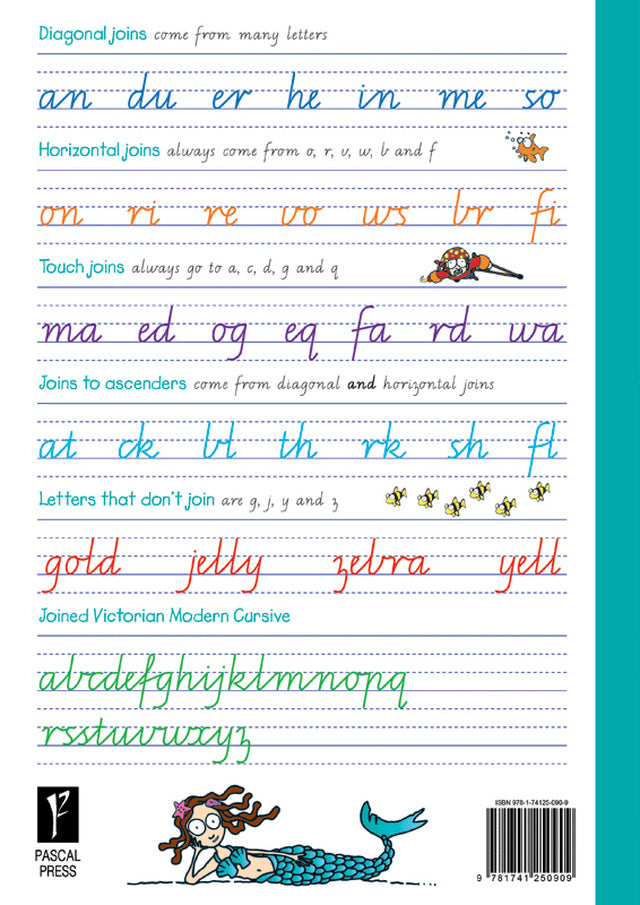 Diagonal joins come from many letters
an du er he in me so
Horizontal joins always come from o, r, v, w, b and f
on ri re vo ws br fi
Touch joins always go to a, c, d, g and q
ma ed og eq fa rd wa
Joins to ascenders come from diagonal and horizontal joins
at ck bl th rk sh fl
Letters that don't join are g, j, y and z
gold jelly zebra yell
Joined Victorian Modern Cursive
abcdefghijklmnopq
rsstuvwxyz
PASCAL
PRESS
ISBN 978-1-74125-090-9
9 781741 250909